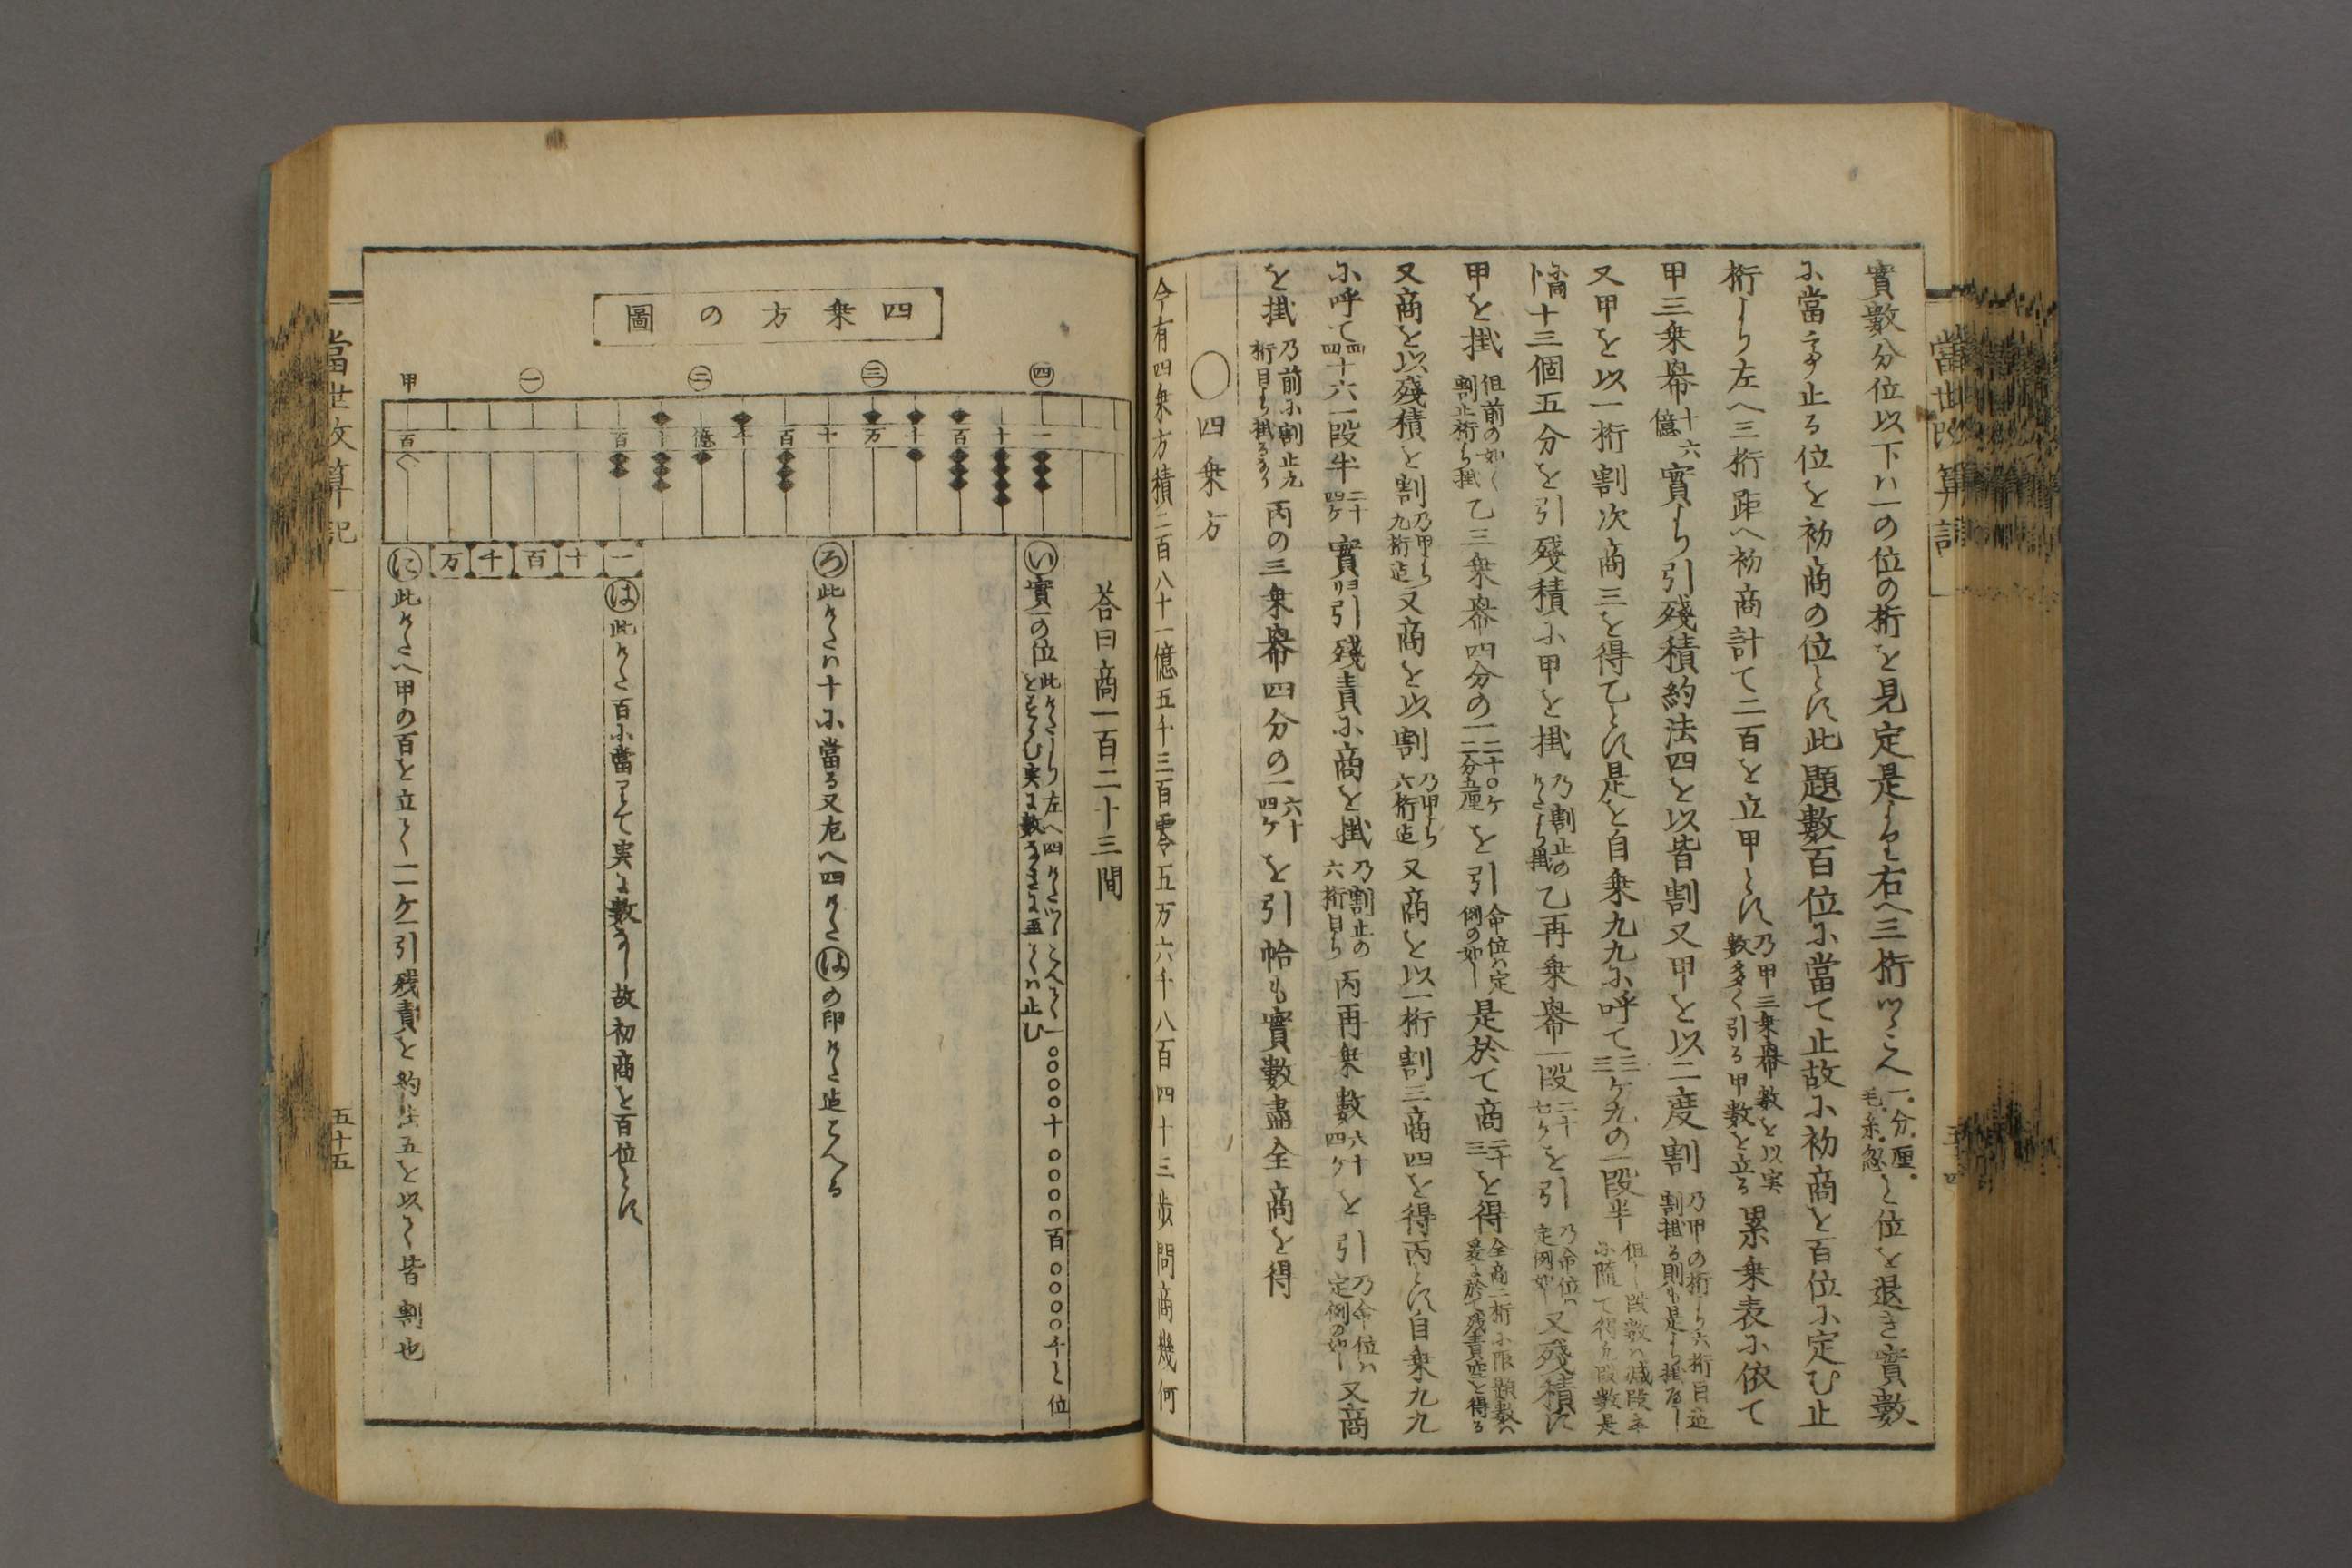 實數分位以下ハ一の位の桁を見定是より右へ三桁ツヽこへ一分厘毛糸忽と位を退き實數
に當て止る位を初商の位とす此題數百位に當て止故に初商を百位に定む止
桁より左へ三桁距へ初商計て二百を立甲とす乃甲三乗羃数を以実數多く引る甲数を立る累乗表に依て
甲三乗羃十六億實より引殘積約法四を以皆割又甲を以二度割乃甲の桁より六桁目迠割掛る則も是より掛べし
又甲を以一桁割次商三を得乙とす是を自乗九九に呼て三三ケ九の一段半但し段数ハ减段本に隨て得九段數是
十三個五分を引殘積に甲を掛乃割止のけたより掛乙再乗羃一段二十七ケを引乃命位ハ定例如し又殘積に
甲を掛但前の如く割止桁ら掛乙三乗羃四分の一二十〇ケ二分五厘を引命位ハ定例の如し是於て商二十三を得全商二桁に限題数ハ爰に於て残責空を得る
又商を以殘積を割乃甲より九桁迠又商を以割乃甲より六桁迠又商を以一桁割三商四を得丙とす自乗九九
に呼て四四十六一段半二十四ケ實ヨリ引殘責に商を掛乃割止の六桁目ら丙再乗數六十四ケを引乃命位ハ定例の如し又商
を掛乃前に割止九桁目より掛るなり丙の三乗羃四分の一六十四ケを引恰も實數盡全商を得
〇四乗方
今有四乗方積二百八十一億五千三百零五万六千八百四十三歩問商幾何
荅曰商一百二十三間
四乗方の圖
四
三
二
一
甲
一
十
百
千
万
い實一の位此けたより左へ四けたツヽこへて一〇〇〇〇十〇〇〇〇百〇〇〇〇千と位
ろ此けたハ十に當る又左へ四けたはの印けた迠こへる
は此けた百に當りて実に數なし故初商を百位とす
に此けたへ甲の百を立て一ケ引残責を約法五を以て皆割也
當世改算記
五十五